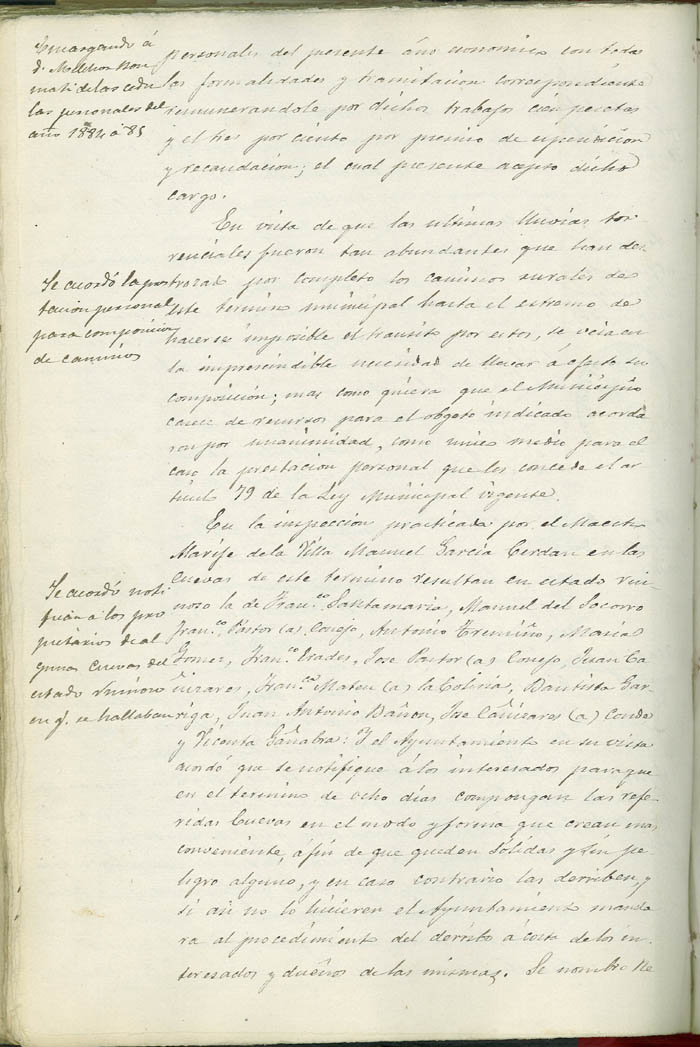 Encargando á
d. Melchor Mon
de las cedu
las personales del
año 1884 á 85
personales del presente año economico con todas
las formalidades y tramitacion correspondiente
remunerandole por dichos trabajos cien pesetas
y el tres por ciento por premio de espendicion
y recaudacion; el cual presente acepto dicho
cargo.
En vista de que las ultimas lluvias tor-
renciales fueron tan abundantes que han des-
Se acordó la pres
tacion personal
para composicion
de caminos
trozado por completo los caminos rurales de
este termino municipal hasta el extremo de
hacerse imposible el transito por estos, se veia en
la imprescindible necesidad de llevar á efecto su
composicion; mas como quiera que el Municipio
carece de recursos para el obgeto indicado acorda
ron por unanimidad, como unico medio para el
caso la prestacion personal que les concede el ar
ticulo 79 de la Ley Municipal vigente.
En la inspección practicada por el Maestro
Alarife de la Villa Manuel García Cerdan en las
Cuevas de este termino resultan en estado rui-
Se acordó noti
ficar á los pro
pietarios de al
gunas Cuevas del
estado ruinoso
en q. se hallaban
noso la de Fran.co Santamaria, Manuel del Socorro
Fran.co Pastor (a) Conejo, Antonio Tremiño, Maria
Gomez, Fran.co Prades, Jose Pastor (a) Conejo, Juan Ca
ñizares, Fran.ca Mateu (a) la Bautista Gar-
riga, Juan Antonio Bañon, Jose Cañizares (a) Conde
y Vicenta Gañabra: Y el Ayuntamiento en su vista
acordó que se notifique á los interesados para que
en el termino de ocho dias compongan las refe-
ridas Cuevas en el modo y forma que crean mas
conveniente, á fin de que queden sólidas y sin pe-
ligro alguno, y en caso contrario las derriben, y
si asi no lo hicieren el Ayuntamiento manda
ra al procedimiento del derribo á costa de los in-
teresados y dueños de las mismas. Se nombro Re